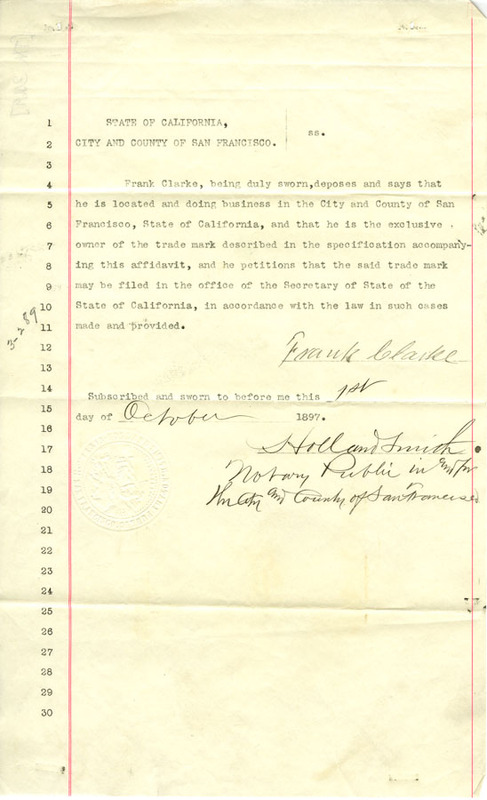 1 STATE OF CALIFORNIA,
ss.
2 CITY AND COUNTY OF SAN FRANCISCO.
3
4 Frank Clarke, being duly sworn,deposes and says that
5 he is located and doing business in the City and County of San
6 Francisco, State of California, and that he is the exclusive
7 owner of the trade mark described in the specification accompany-
8 ing this affidavit, and he petitions that the said trade mark
9 may be filed in the office of the Secretary of State of the
10 State of California, in accordance with the law in such cases
11 made and provided.
3-289
12 Frank Clarke
13
14 Subscribed and sworn to before me this 1st
15 day of October 1897.
16
17 Holland Smith
18 Notary Public in and for
19 the City and County of San Francisco
20
21
22
23
24
25
26
27
28
29
30